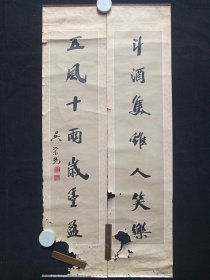 斗酒隻雞人笑樂
五風十雨歲豐盈
吳榮光